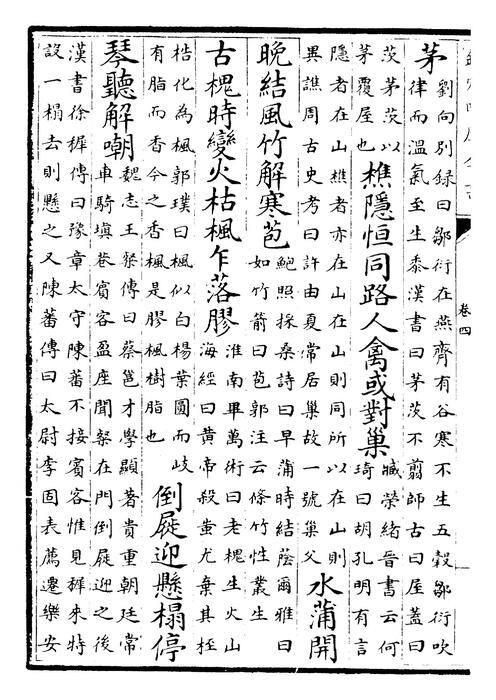 卷四
茅劉向別録曰鄒衍在燕齊有谷寒不生五穀鄒衍吹
律而溫氣至生黍漢書曰茅茨不翦師古曰屋蓋曰
茨茅茨以
茅覆屋也樵隱恒同路人禽或對巢臧榮緒晉書云何
琦曰胡孔明有言
隱者在山樵者亦在山在山則同所以在山則
異譙周古史考曰許由夏常居巢故一號巢父水蒲開
晚結風竹解寒苞鮑照採桑詩曰早蒲時結蔭爾雅曰
如竹箭曰苞郭注云條竹性叢生
古槐時變火枯楓乍落膠淮南畢萬術曰老槐生火山
海經曰黄帝殺蚩尤棄其桎
梏化為楓郭璞曰楓似白楊葉圓而岐
有脂而香今之香楓是膠楓樹脂也倒屣迎懸榻停
琴聽解嘲魏志王粲傳曰蔡邕才學顯著貴重朝廷常
車騎填巷賓客盈座聞粲在門倒屣迎之後
漢書徐穉傳曰豫章太守陳蕃不接賓客惟見穉來特
設一榻去則懸之又陳蕃傳曰太尉李固表薦遷樂安